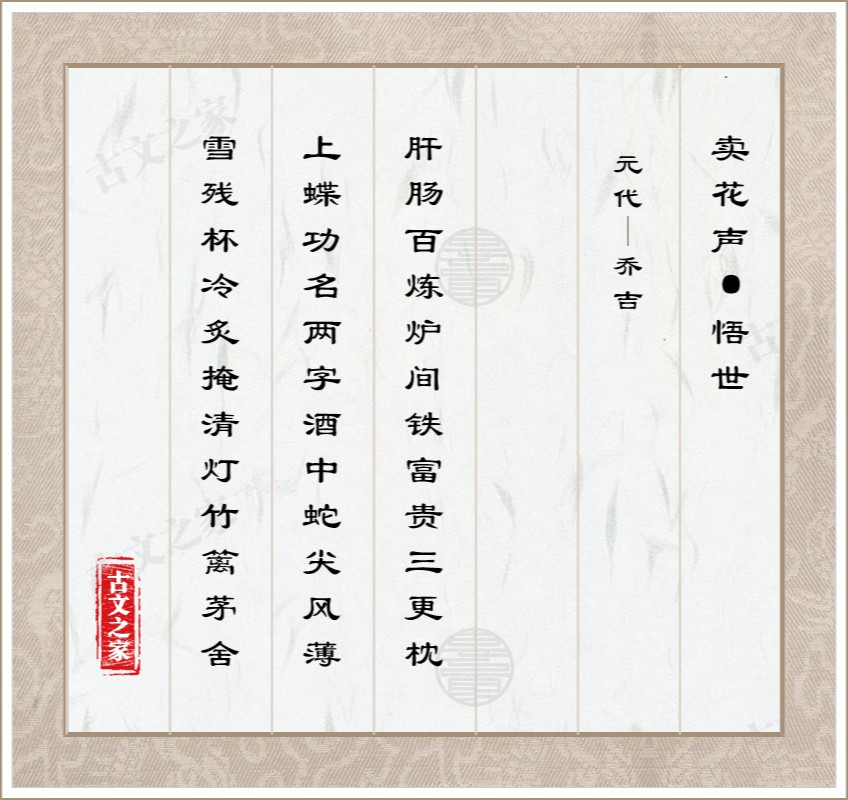 卖花声●悟世
元代—乔吉
肝肠百炼炉间铁富贵三更枕
上蝶功名两字酒中蛇尖风薄
雪残杯冷炙掩清灯竹篱茅舍
古文之家
古文之家
古文之家